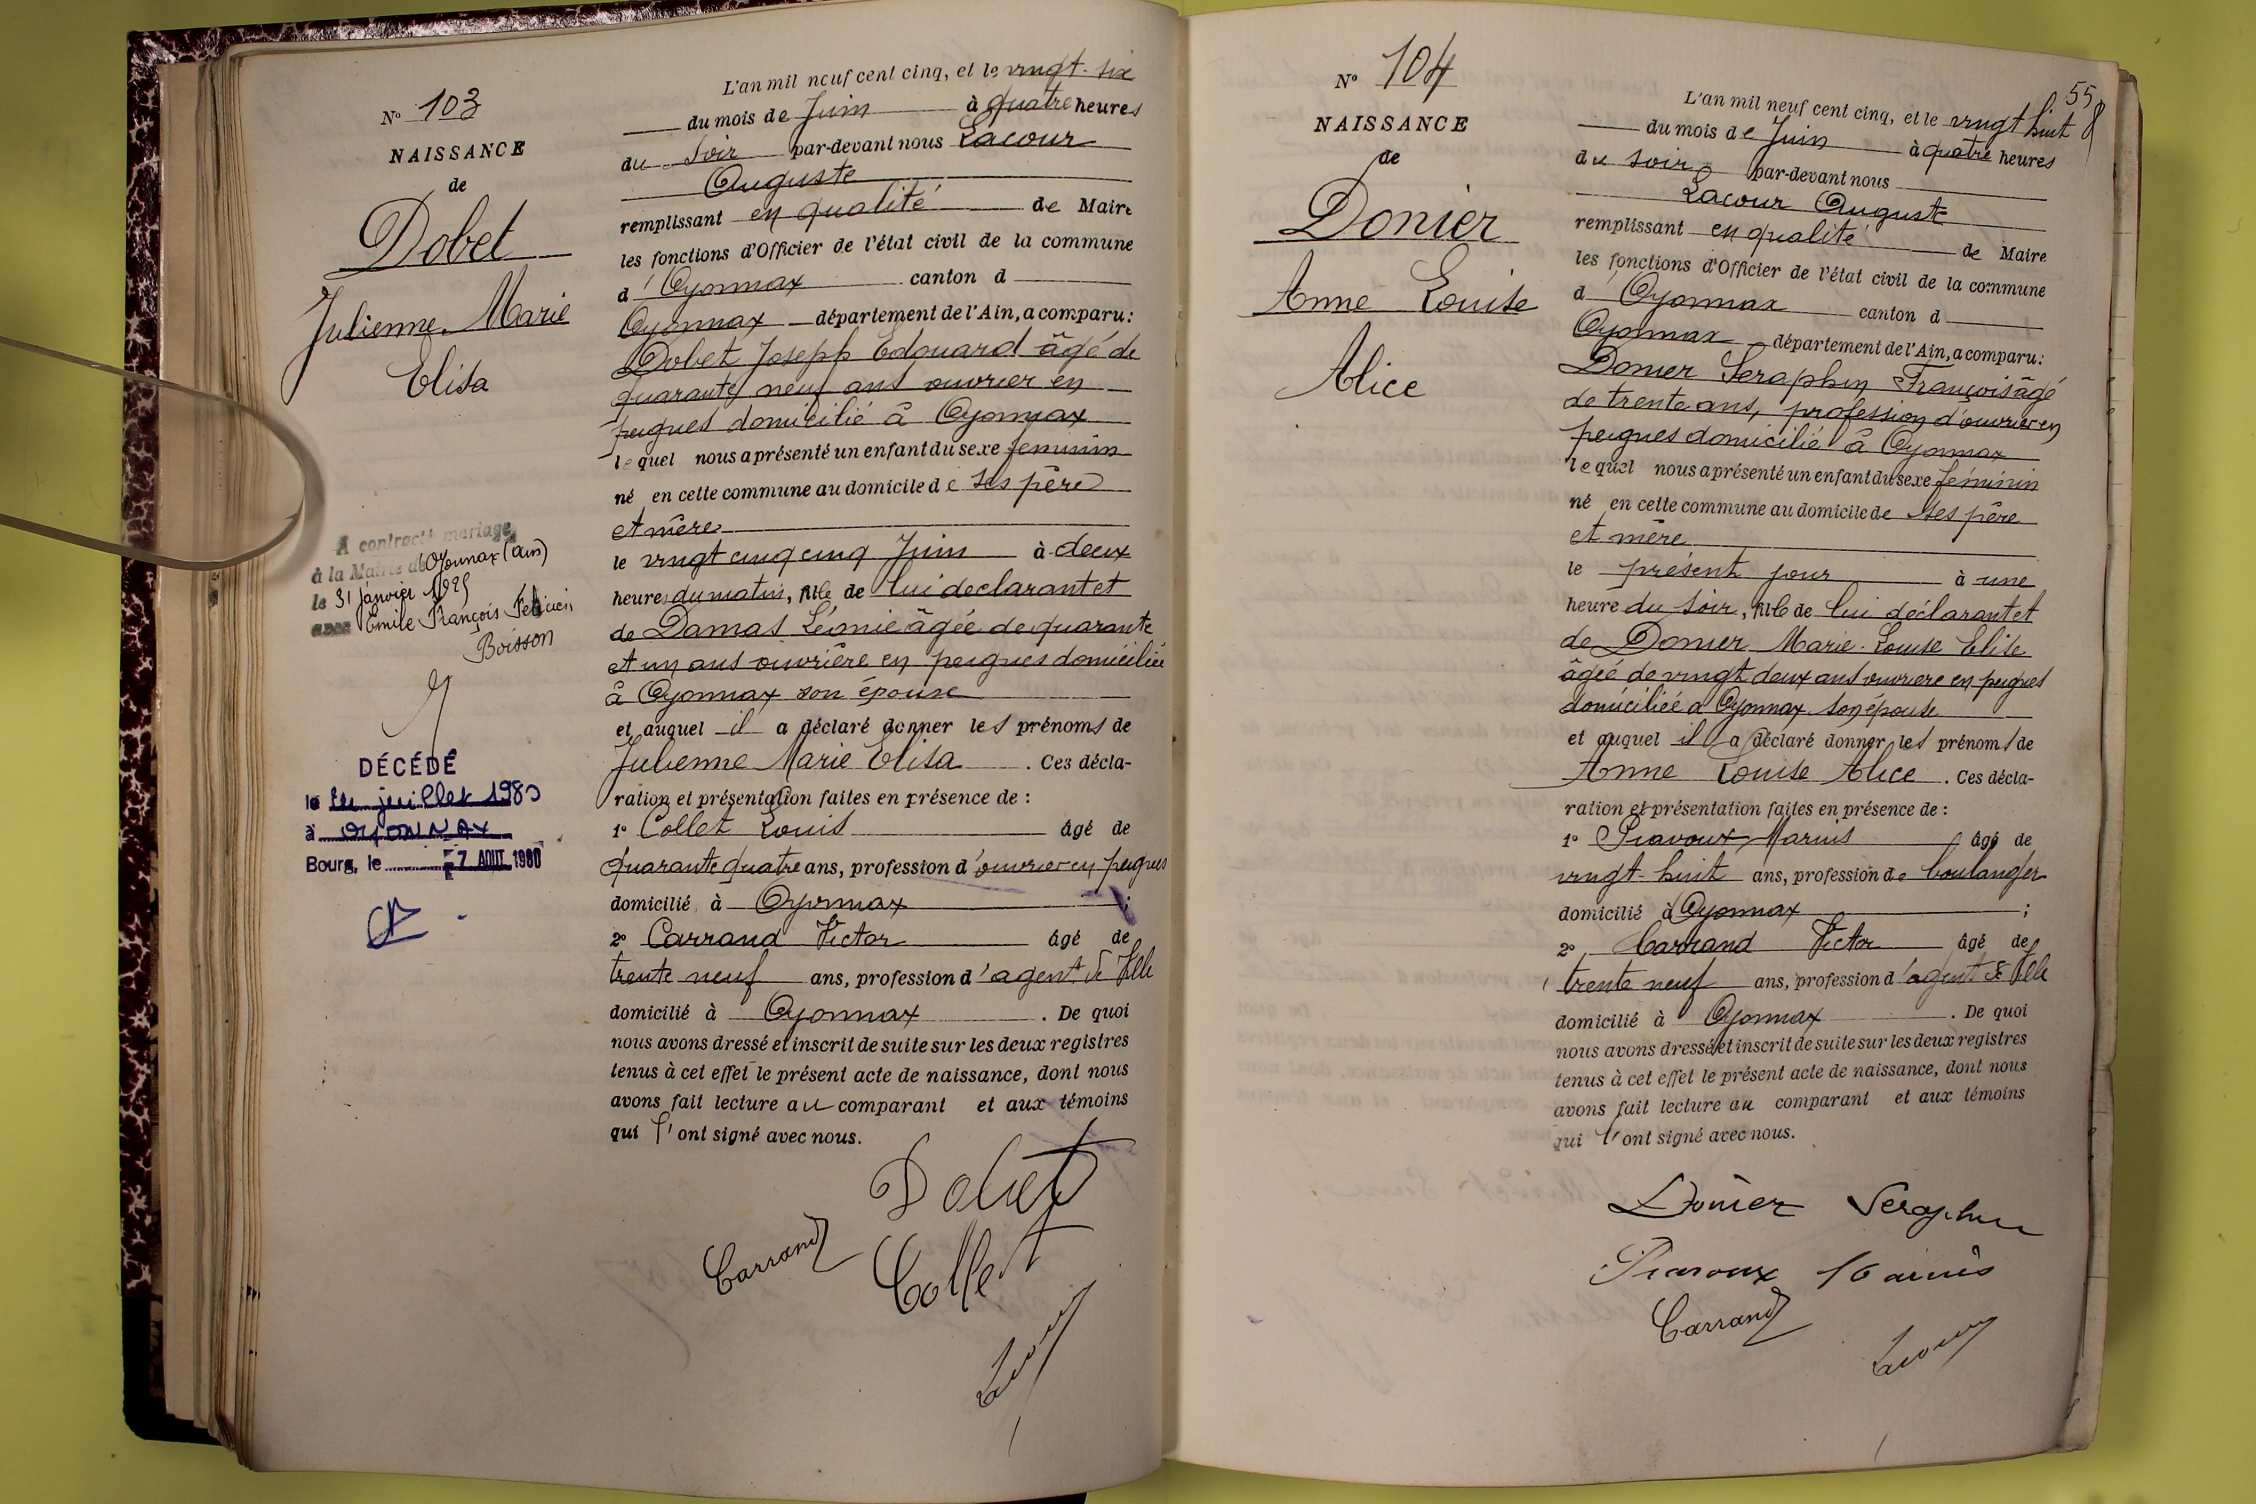 N° 103
NAISSANCE
de
Dobet
Julienne Marie
Elisa
A contracté mariage
à la Mairie d'Oyonnax (Ain)
le 31 janvier 1925
avec Emile François
Boisson
DÉCÉDÉ
le juillet 1980
à OYONNAX
Bourg, le 7 AOUT 1980
L'an mil neuf cent cinq, et le vingt-six
du mois de Juin à quatre heures
du soir par-devant nous Lacour
Auguste
remplissant en qualité de Maire
les fonctions d'Officier de l'état civil de la commune
d'Oyonnax canton d
Oyonnax département de l'Ain, a comparu:
Dobet Joseph Edouard âgé de
quarante neuf ans ouvrier en
peignes domicilié à Oyonnax
lequel nous a présenté un enfant du sexe feminin
né en cette commune au domicile de ses père
et mère
le vingt cinq cinq Juin à deux
heures du matin, fille de lui declarant et
de Damas Léonie âgée de quarante
et un ans ouvrière en peignes domiciliée
à Oyonnax son épouse
et auquel il a déclaré donner les prénoms de
Julienne Marie Elisa. Ces décla-
ration et présentation faites en présence de :
1° Collet Louis âgé de
quarante quatre ans, profession d'ouvrier en peignes
domicilié à Oyonnax ;
2° Carrand Victor âgé de
trente neuf ans, profession d'agent de Ville
domicilié à Oyonnax. De quoi
nous avons dressé et inscrit de suite sur les deux registres
tenus à cet effet le présent acte de naissance, dont nous
avons fait lecture au comparant et aux témoins
qui l'ont signé avec nous.
Dobet
Carrand Collet
Lacour
N° 104
NAISSANCE
de
Donier
Anne Louise
Alice
55
L'an mil neuf cent cinq, et le vingt huit
du mois de Juin à quatre heures
du soir par-devant nous
Lacour Auguste
remplissant en qualité de Maire
les fonctions d'Officier de l'état civil de la commune
d Oyonnax canton d
Oyonnax département de l'Ain, a comparu:
Donier Séraphin François âgé
de trente ans, profession d'ouvrier en
peignes domicilié à Oyonnax
lequel nous a présenté un enfant du sexe féminin
né en cette commune au domicile de ses père
et mère
le présent jour à une
heure du soir, fille de lui déclarant et
de Donier Marie Louise Elise
âgée de vingt deux ans ouvriere en peignes
domiciliée à Oyonnax son épouse
et auquel il a déclaré donner les prénoms de
Anne Louise Alice. Ces décla-
ration et présentation faites en présence de :
1° Piavoux Marius âgé de
vingt-huit ans, profession de boulanger
domicilié à Oyonnax ;
2° Carrand Victor âgé de
trente neuf ans, profession d'agent de Ville
domicilié à Oyonnax. De quoi
nous avons dressé et inscrit de suite sur les deux registres
tenus à cet effet le présent acte de naissance, dont nous
avons fait lecture au comparant et aux témoins
qui l'ont signé avec nous.
Donier Seraphin
Piavoux Marius
Carrand
Lacour